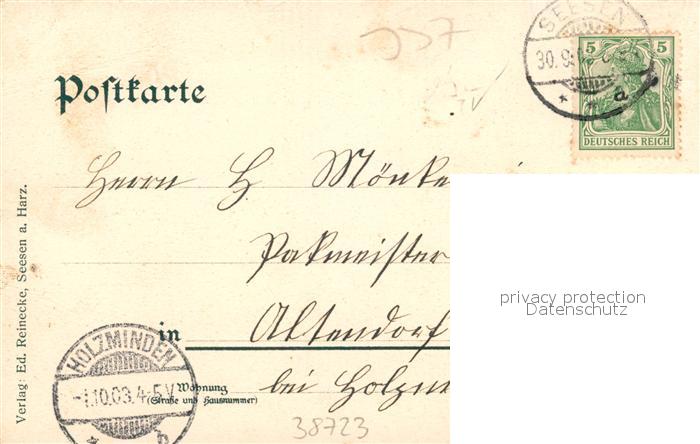 SEESEN
30.9.
a
5 5
DEUTSCHES REICH
Postkarte
Herrn H. Mönke
Pakmeister
in Altendorf
bei Holzm
Wohnung
(Straße und Hausnummer)
HOLZMINDEN
-1.10.03.4-5V
b
Verlag: Ed. Reinecke, Seesen a. Harz.
38723
privacy protection
Datenschutz